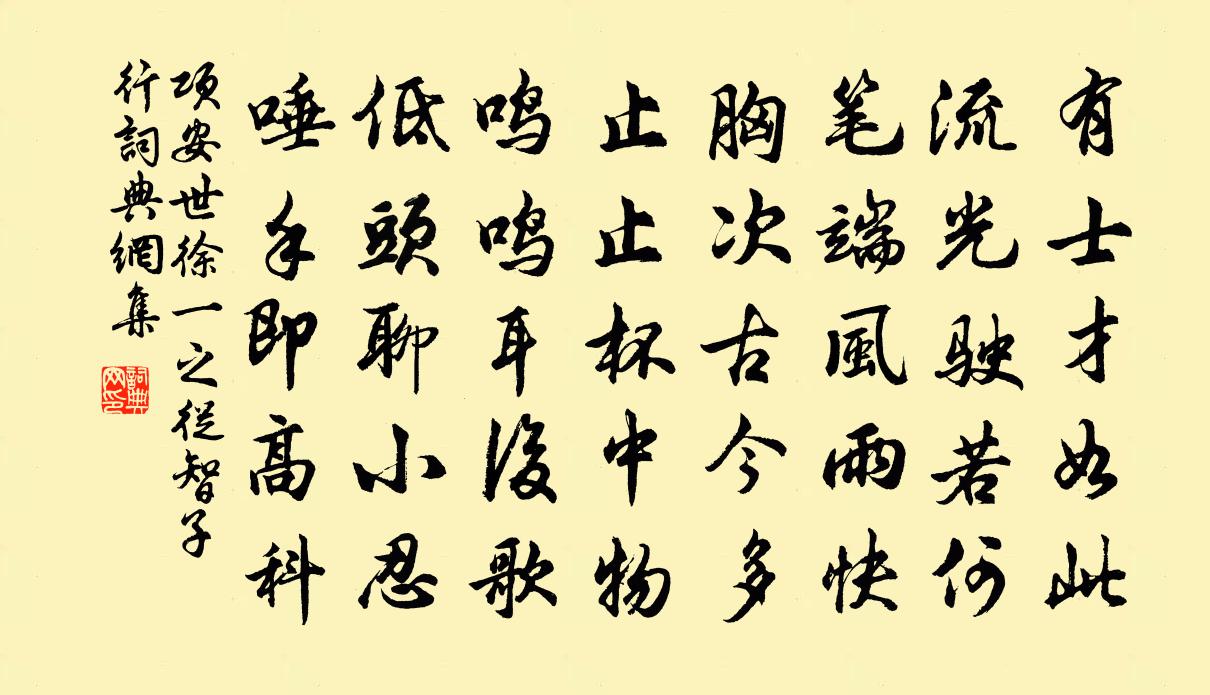 有士才如此
流光駛若何
笔端風雨快
胸次古今多
止止杯中物
鸣鸣耳後歌
低頭聊小忍
唾手即高科
項安世徐一之從智子
行詞典網集
詞典
网印